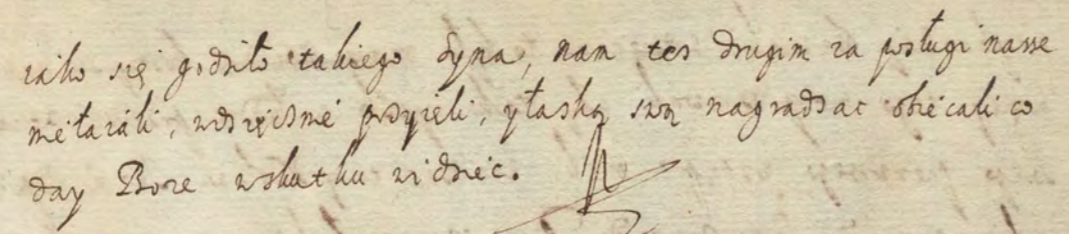 iako się godziło takiego syna, nam tes drugim za posługi nasse
niełaiali, wdzięcznie przyięli, y łaską swą nagradzac obiecali co
day Boze wskutku widziec.